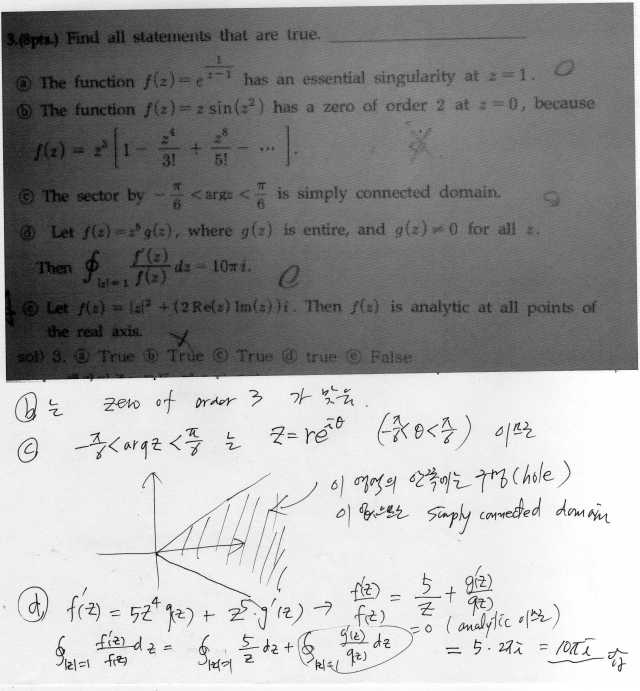 3.(8pts.) Find all statements that are true.
ⓐ The function f(z) = e^{1/(z-1)} has an essential singularity at z = 1. O
ⓑ The function f(z) = z sin(z²) has a zero of order 2 at z = 0, because
f(z) = z³ [1 − z⁴/3! + z⁸/5! − ⋯ ].
ⓒ The sector by −π/6 < arg z < π/6 is simply connected domain.
ⓓ Let f(z) = z⁵ g(z), where g(z) is entire, and g(z) ≠ 0 for all z.
Then ∮_{|z|=1} f'(z)/f(z) dz = 10πi.
ⓔ Let f(z) = |z|² + (2 Re(z) Im(z))i. Then f(z) is analytic at all points of
the real axis.
sol) 3. ⓐ True ⓑ True ⓒ True ⓓ true ⓔ False
ⓑ는 zero of order 3 가 맞음.
ⓒ −π/6 < arg z < π/6 는 z = re^{iθ} (−π/6 < θ < π/6) 이므로
이 영역의 안쪽에는 구멍(hole)
이 없으므로 simply connected domain
ⓓ f'(z) = 5z⁴ g(z) + z⁵·g'(z) → f'(z)/f(z) = 5/z + g'(z)/g(z)
∮_{|z|=1} f'(z)/f(z) dz = ∮_{|z|=1} 5/z dz + ∮_{|z|=1} g'(z)/g(z) dz = 0 (analytic 이므로)
= 5·2πi = 10πi